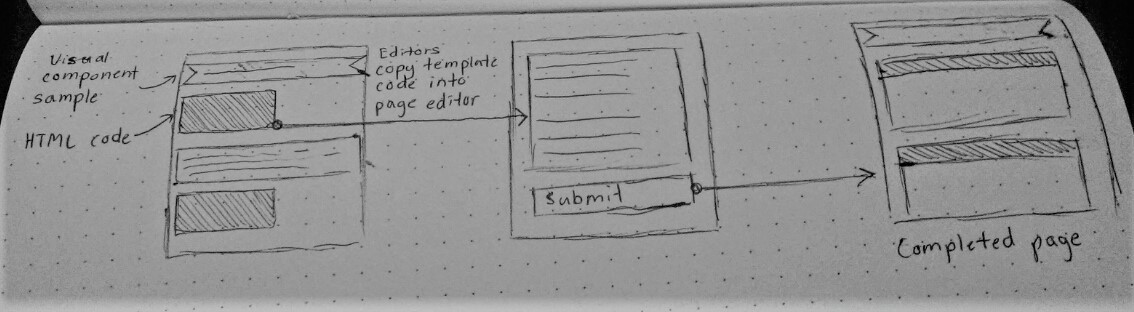 Visual
component
sample
HTML code
Editors
copy template
code into
page editor
Submit
Completed page